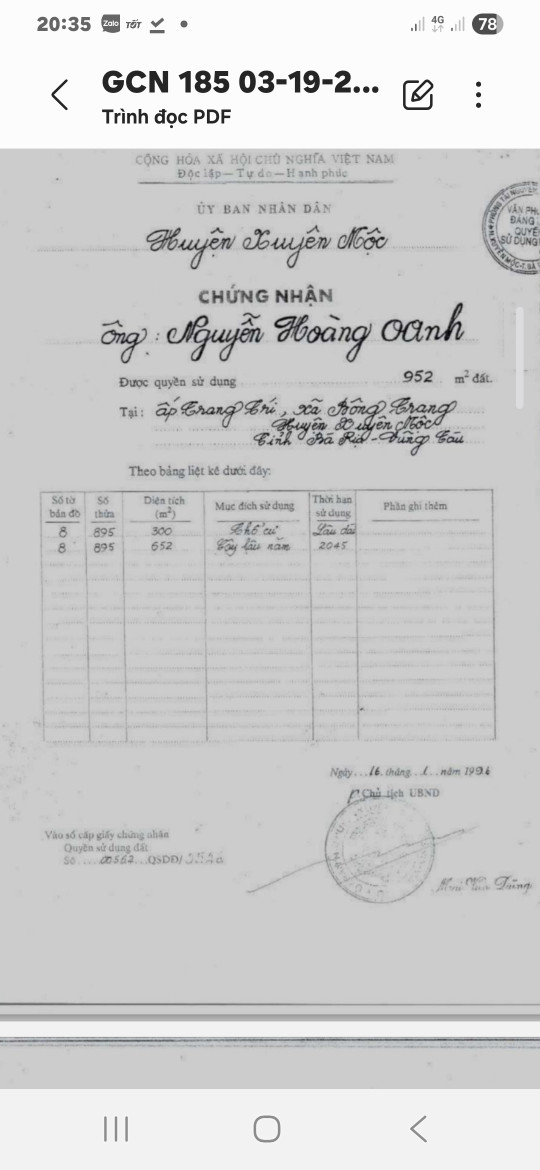 20:35 Zalo TỐT 4G 78
GCN 185 03-19-2...
Trình đọc PDF
CỘNG HÒA XÃ HỘI CHỦ NGHĨA VIỆT NAM
Độc lập—Tự do—Hạnh phúc
ỦY BAN NHÂN DÂN
Huyện Xuyên Mộc
VĂN PH
ĐĂNG
QUYỀ
SỬ DỤNG
CHỨNG NHẬN
Ông: Nguyễn Hoàng Oanh
Được quyền sử dụng 952 m² đất.
Tại: ấp Trang Trí, xã Bông Trang
Huyện Xuyên Mộc
Tỉnh Bà Rịa-Vũng Tàu
Theo bảng liệt kê dưới đây:
Số tờ bản đồ Số thửa Diện tích (m²) Mục đích sử dụng Thời hạn sử dụng Phần ghi thêm
8 895 300 Thổ cư Lâu dài
8 895 652 Cây lâu năm 2045
Ngày...16.tháng..1...năm 1996
P.Chủ tịch UBND
Vào sổ cấp giấy chứng nhận
Quyền sử dụng đất
Số ....00562...QSDĐ/